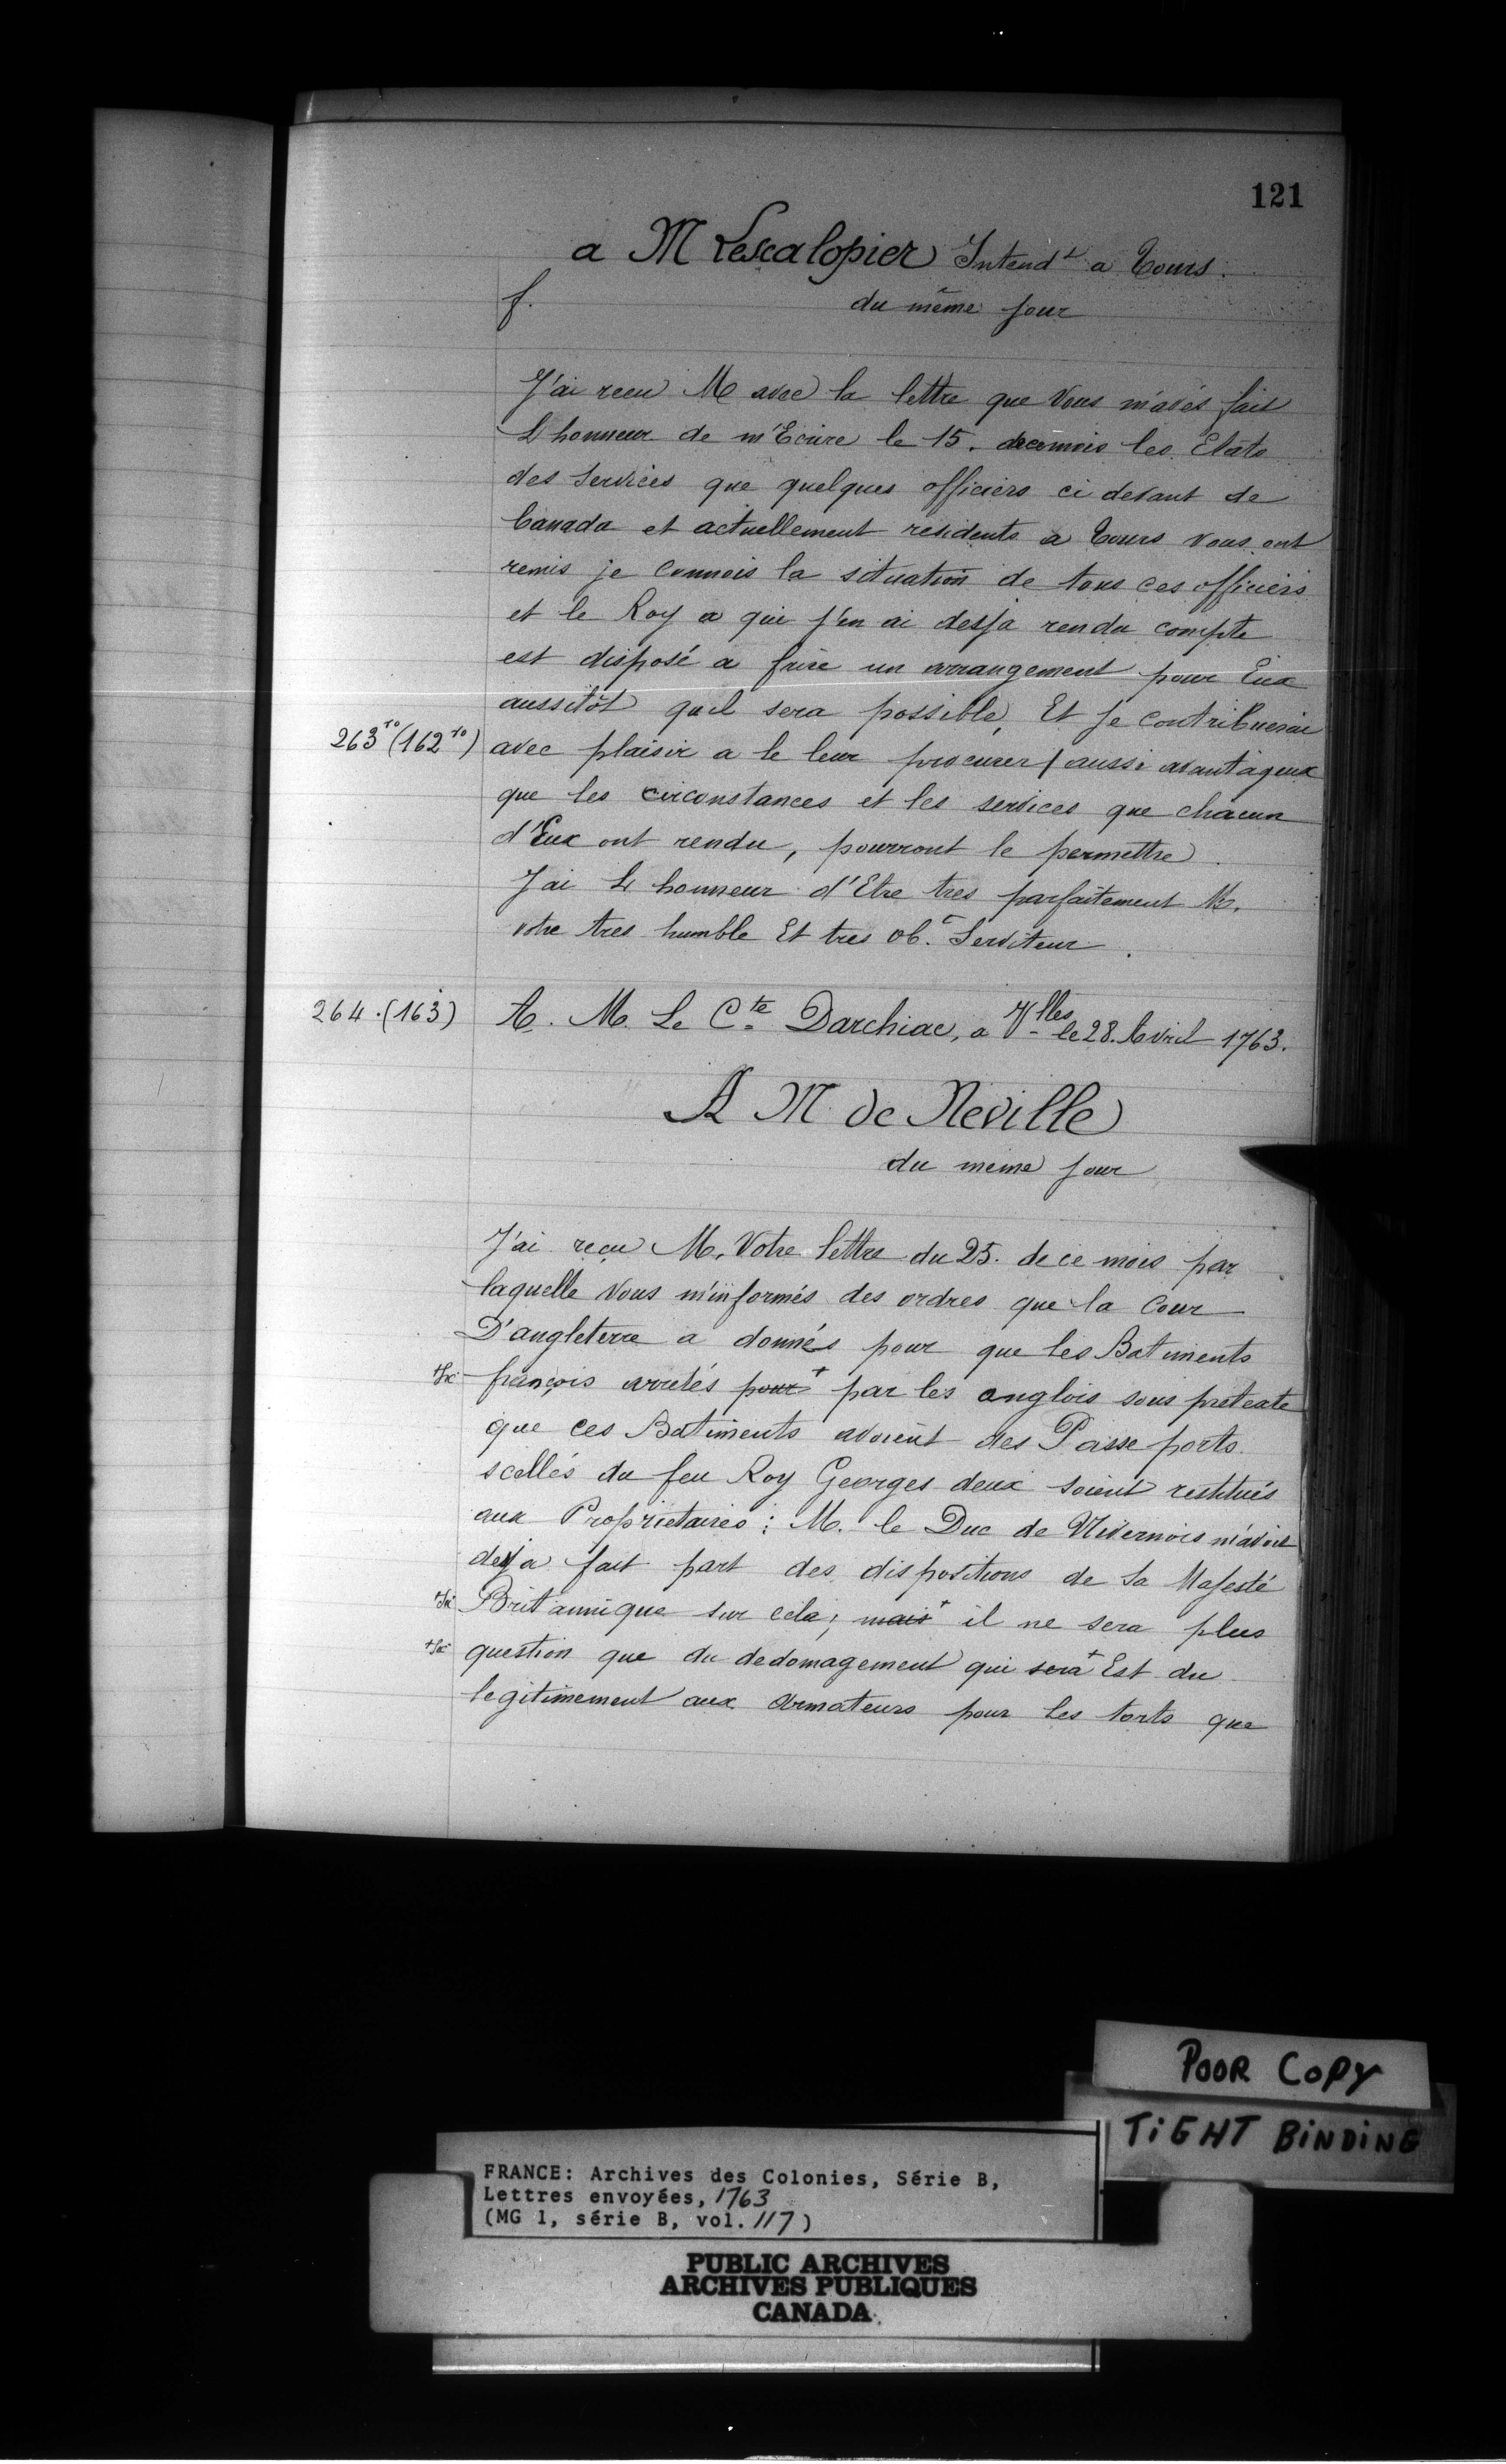 121
a M Lescalopier Intendt a Tours.
f.
du même jour
J'ai recu M avec la lettre que Vous m'avés fait
L honneur de m'Ecrire le 15. decemois les Etats
des Services que quelques officiers ci devant de
Canada et actuellement residents a Tours vous ont
remis je connois la situation de tous ces officiers
et le Roy a qui j'en ai desja rendu compte
est disposé a faire un arrangement pour Eux
aussitôt quil sera possible, Et je contribuerai
263ro (162ro) avec plaisir a le leur procurer / aussi avantageux
que les circonstances et les services que chacun
d'Eux ont rendu, pourront le permettre.
J'ai L honneur d'Etre tres parfaitement M.
votre tres humble Et tres ob.t Serviteur.
264. (163) A. M. Le Cte Darchiac, a Vlles le 28. Avril 1763.
A M de Neville
du meme jour
J'ai reçu M. Votre lettre du 25. de ce mois par
laquelle Vous m'informés des ordres que la Cour
D'angleterre a donnés pour que les Batiments
+sic françois arretés pour+ par les anglois sous pretexte
que ces Batiments avoient des Passe ports
scellés du feu Roy Georges deux soient restitués
aux Proprietaires : M. le Duc de Nivernois m'avoit
deja fait part des dispositions de Sa Majesté
+sic Britannique sur cela ; mais+ il ne sera plus
+sic question que du dedomagement qui sera+ Est du
legitimement aux armateurs pour les torts que
POOR COPY
TIGHT BINDING
FRANCE: Archives des Colonies, Série B,
Lettres envoyées, 1763
(MG 1, série B, vol. 117)
PUBLIC ARCHIVES
ARCHIVES PUBLIQUES
CANADA